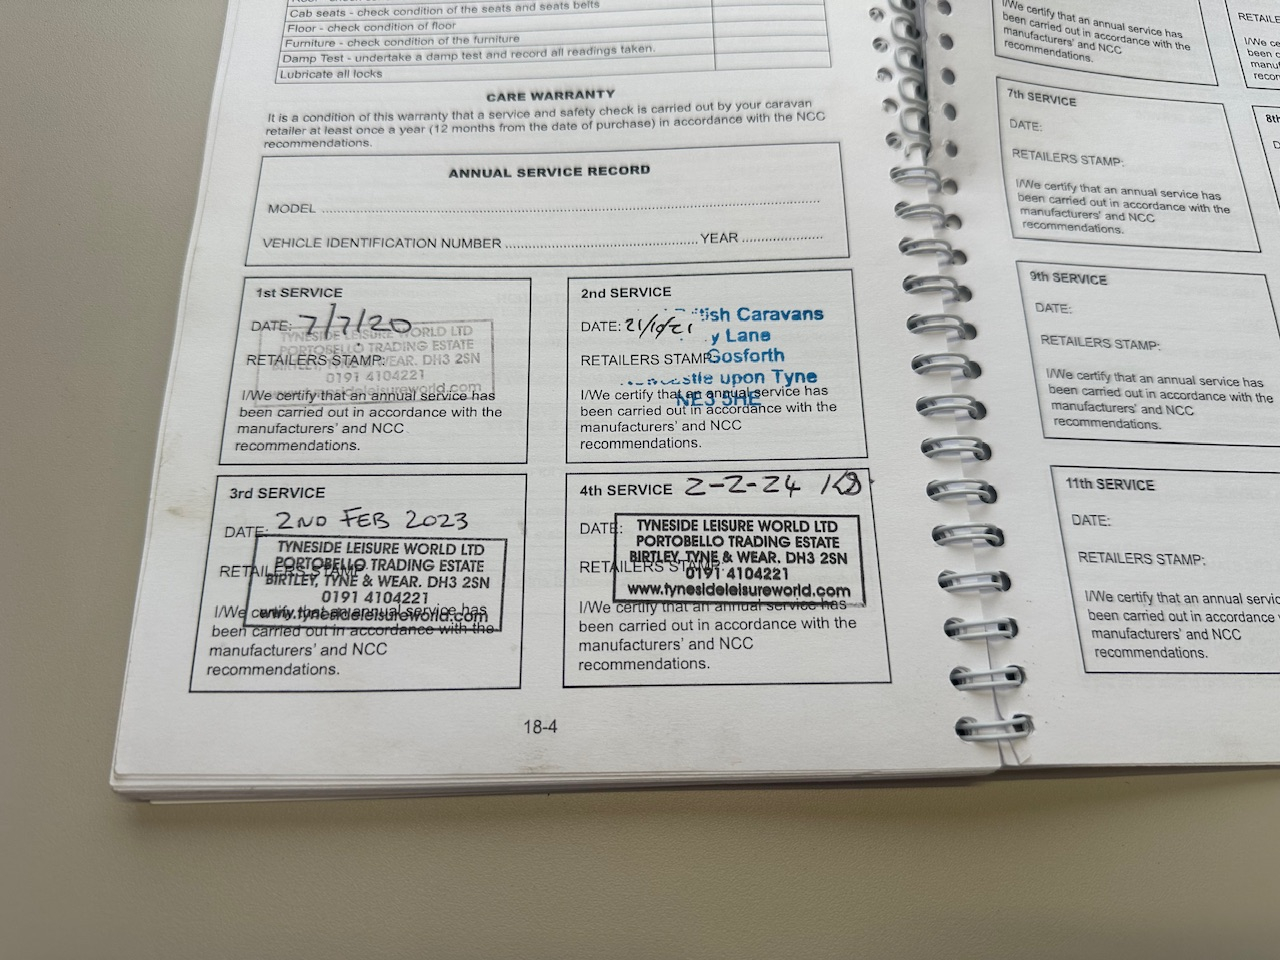 Cab seats - check condition of the seats and seats belts
Floor - check condition of floor
Furniture - check condition of the furniture
Damp Test - undertake a damp test and record all readings taken.
Lubricate all locks
CARE WARRANTY
It is a condition of this warranty that a service and safety check is carried out by your caravan
retailer at least once a year (12 months from the date of purchase) in accordance with the NCC
recommendations.
ANNUAL SERVICE RECORD
MODEL
VEHICLE IDENTIFICATION NUMBER YEAR
1st SERVICE
DATE: 7/7/20
TYNESIDE LEISURE WORLD LTD
PORTOBELLO TRADING ESTATE
RETAILERS STAMP:
BIRTLEY, TYNE & WEAR. DH3 2SN
0191 4104221
www.tynesideleisureworld.com
I/We certify that an annual service has
been carried out in accordance with the
manufacturers' and NCC
recommendations.
2nd SERVICE
DATE: 21/10/21
Caravans
y Lane
RETAILERS STAMP:
Gosforth
upon Tyne
NE3 5HE
I/We certify that an annual service has
been carried out in accordance with the
manufacturers' and NCC
recommendations.
3rd SERVICE
DATE: 2ND FEB 2023
TYNESIDE LEISURE WORLD LTD
PORTOBELLO TRADING ESTATE
RETAILERS STAMP:
BIRTLEY, TYNE & WEAR. DH3 2SN
0191 4104221
www.tynesideleisureworld.com
I/We certify that an annual service has
been carried out in accordance with the
manufacturers' and NCC
recommendations.
4th SERVICE 2-2-24
DATE:
TYNESIDE LEISURE WORLD LTD
PORTOBELLO TRADING ESTATE
BIRTLEY, TYNE & WEAR. DH3 2SN
RETAILERS STAMP:
0191 4104221
www.tynesideleisureworld.com
I/We certify that an annual service has
been carried out in accordance with the
manufacturers' and NCC
recommendations.
18-4
I/We certify that an annual service has
been carried out in accordance with the
manufacturers' and NCC
recommendations.
7th SERVICE
DATE:
RETAILERS STAMP:
I/We certify that an annual service has
been carried out in accordance with the
manufacturers' and NCC
recommendations.
9th SERVICE
DATE:
RETAILERS STAMP:
I/We certify that an annual service has
been carried out in accordance with the
manufacturers' and NCC
recommendations.
11th SERVICE
DATE:
RETAILERS STAMP:
I/We certify that an annual
been carried out in accordance
manufacturers' and NCC
recommendations.
8th